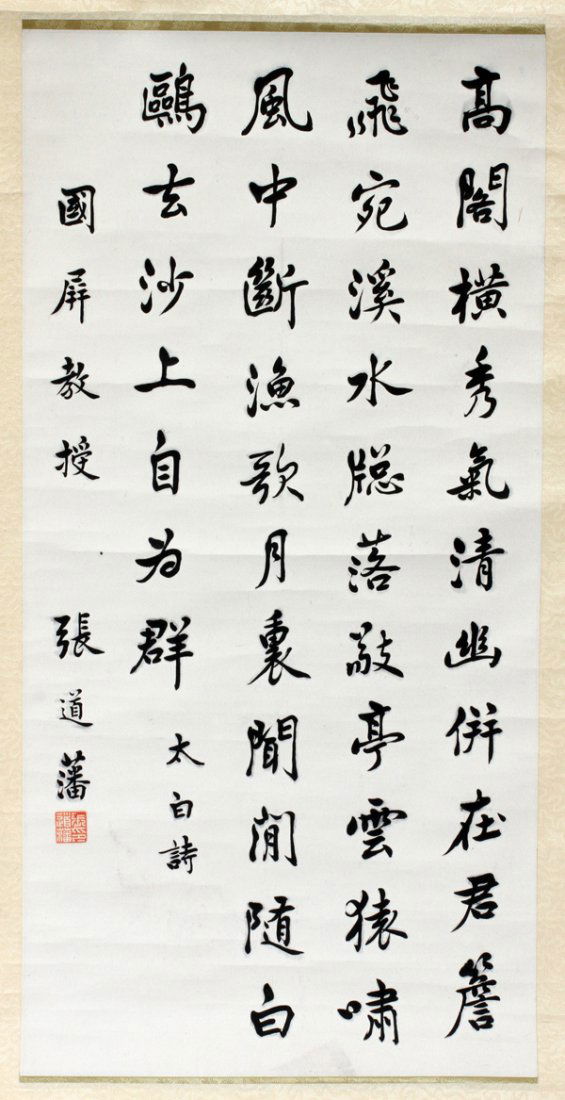 高閣橫秀氣清幽併在君簷
飛宛溪水牕落敬亭雲猿嘯
風中斷漁歌月裏聞閒隨白
鷗去沙上自為群
太白詩
國屏教授
張道藩